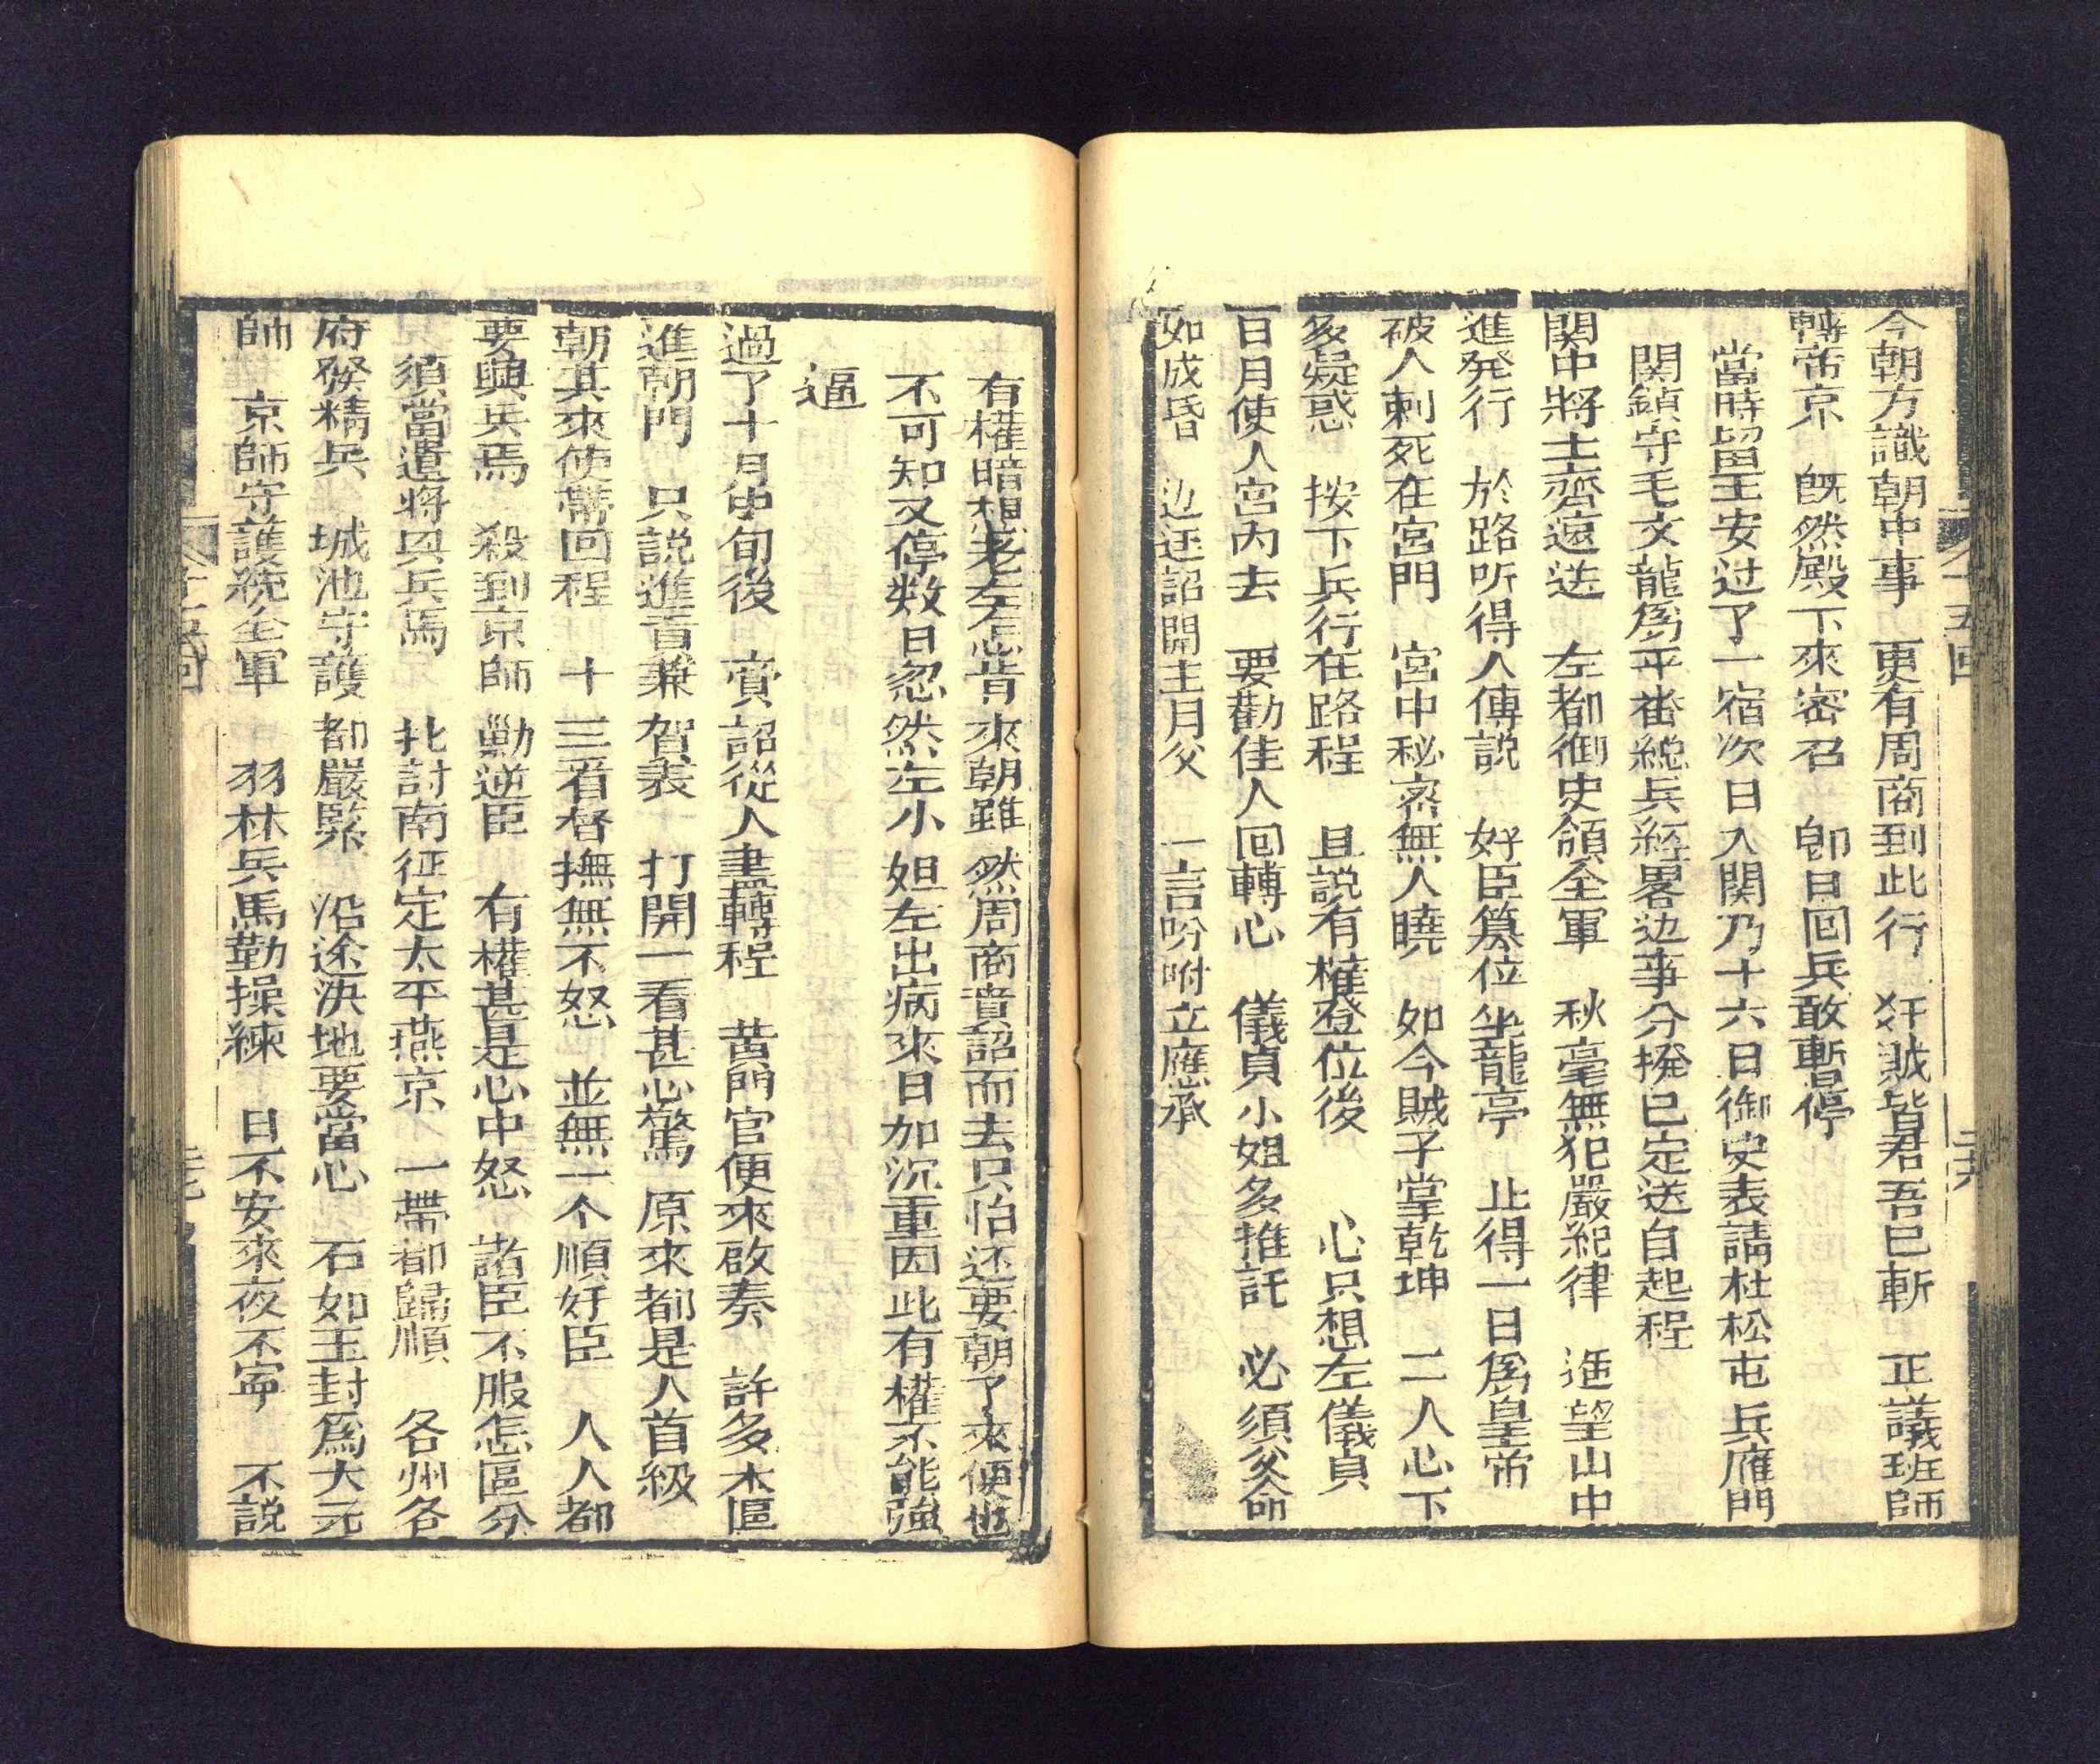 今朝方識朝中事　更有周商到此行　奸賊皆君吾已斬　正議班師
轉帝京　旣然殿下來密召　卽日回兵敢暫停
當時留王安过了一宿次日入関乃十六日御史表請杜松屯兵雁門
関鎮守毛文龍爲平番総兵経畧边事分撥已定送自起程
関中將士齊遠送　左都御史領全軍　秋毫無犯嚴紀律　進望山中
進発行　於路听得人傳説　奸臣篡位坐龍亭　止得一日爲皇帝
被人刺死在宮門　宮中秘密無人曉　如今賊子掌乾坤　二人心下
多疑惑　按下兵行在路程　且説有權登位後　心只想左儀貞
百月使人宮內去　要勸佳人回轉心　儀貞小姐多推託　必須父命
如成昏　边廷詔開主月父　一言吩咐立應承
十五回
有權暗想老左怎肯來朝雖然周商賫詔而去只怕还要朝了來便也
不可知又停数日忽然左小姐左出病來日加沉重因此有權不能強
逼
過了十月中旬後　賫詔從人盡轉程　黄門官便來啟奏　許多木匣
進朝門　只説進貢兼賀表　打開一看甚心驚　原來都是人首級
朝其來使帶回程　十三省督撫無不怒　並無一个順奸臣　人人都
要興兵馬　殺到京師勦逆臣　有權甚是心中怒　諸臣不服怎區分
須當遣將與兵馬　北討南征定太平燕京　一帶都歸順　各州各
府發精兵　城池守護都嚴緊　沿途決地要當心　石如玉封爲大元
帥　京師守護統全軍　羽林兵馬勤操練　日不安來夜不寧　不説